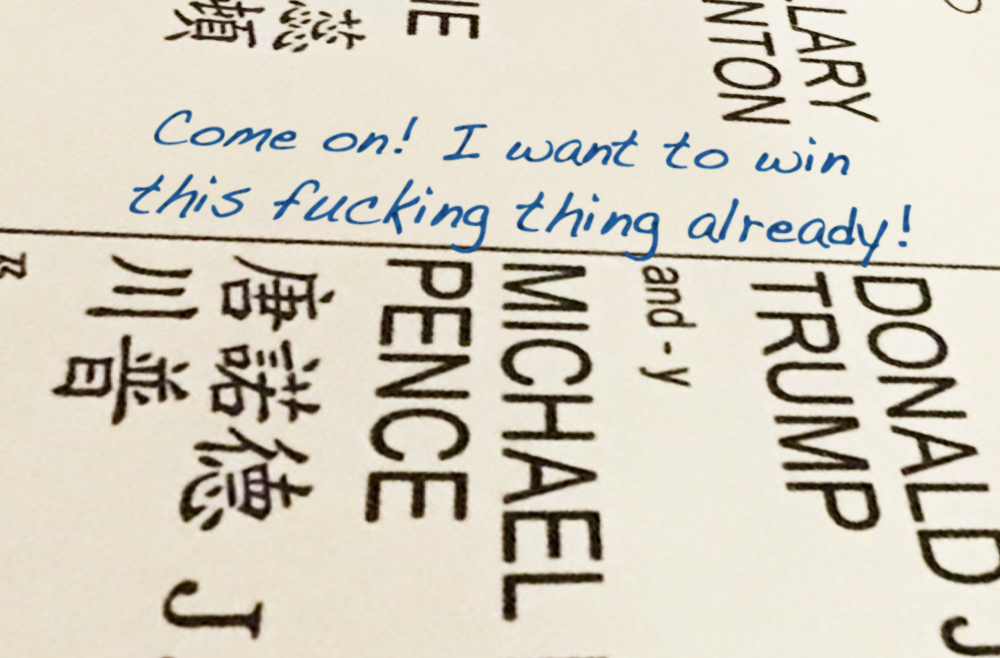 LARY
NTON
NE
蕊
頓
Come on! I want to win
this fucking thing already!
DONALD J
TRUMP
and - y
MICHAEL
PENCE
唐諾德 J
川普